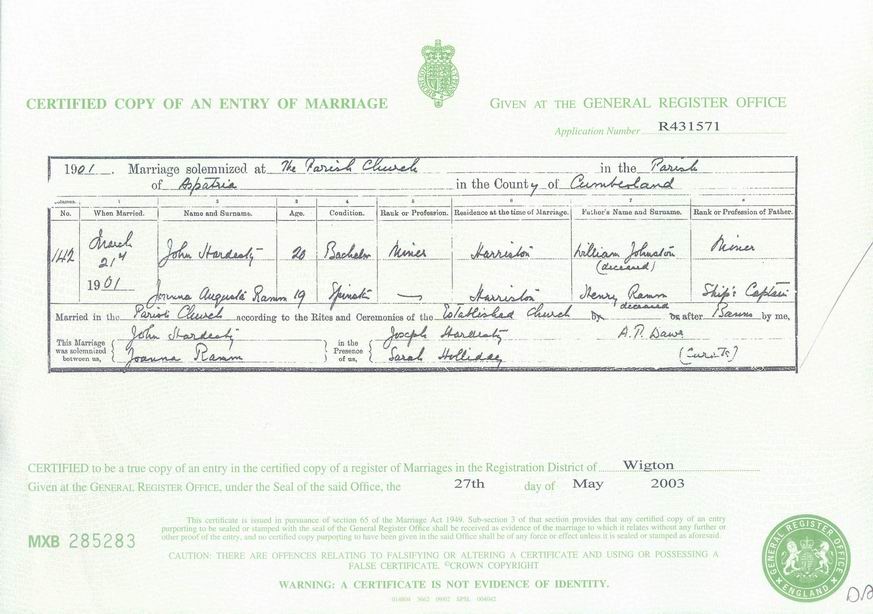 CERTIFIED COPY OF AN ENTRY OF MARRIAGE
GIVEN AT THE GENERAL REGISTER OFFICE
Application Number R431571
1901. Marriage solemnized at The Parish Church in the Parish
of Aspatria in the County of Cumberland
Columns. 1 2 3 4 5 6 7 8
No. When Married. Name and Surname. Age. Condition. Rank or Profession. Residence at the time of Marriage. Father's Name and Surname. Rank or Profession of Father.
142 March 21st 1901 John Hardesty 20 Bachelor Miner Harriston William Johnston (deceased) Miner
Joanna Augusta Ramm 19 Spinster — Harriston Henry Ramm deceased Ship's Captain
Married in the Parish Church according to the Rites and Ceremonies of the Established Church by or after Banns by me,
This Marriage was solemnized between us, John Hardesty Joanna Ramm in the Presence of us, Joseph Hardesty Sarah Holliday A.P. Dawe (Curate)
CERTIFIED to be a true copy of an entry in the certified copy of a register of Marriages in the Registration District of Wigton
Given at the GENERAL REGISTER OFFICE, under the Seal of the said Office, the 27th day of May 2003
MXB 285283
This certificate is issued in pursuance of section 65 of the Marriage Act 1949. Sub-section 3 of that section provides that any certified copy of an entry
purporting to be sealed or stamped with the seal of the General Register Office shall be received as evidence of the marriage to which it relates without any further or
other proof of the entry, and no certified copy purporting to have been given in the said Office shall be of any force or effect unless it is sealed or stamped as aforesaid.
CAUTION: THERE ARE OFFENCES RELATING TO FALSIFYING OR ALTERING A CERTIFICATE AND USING OR POSSESSING A
FALSE CERTIFICATE. ©CROWN COPYRIGHT
WARNING: A CERTIFICATE IS NOT EVIDENCE OF IDENTITY.
GENERAL REGISTER OFFICE
ENGLAND